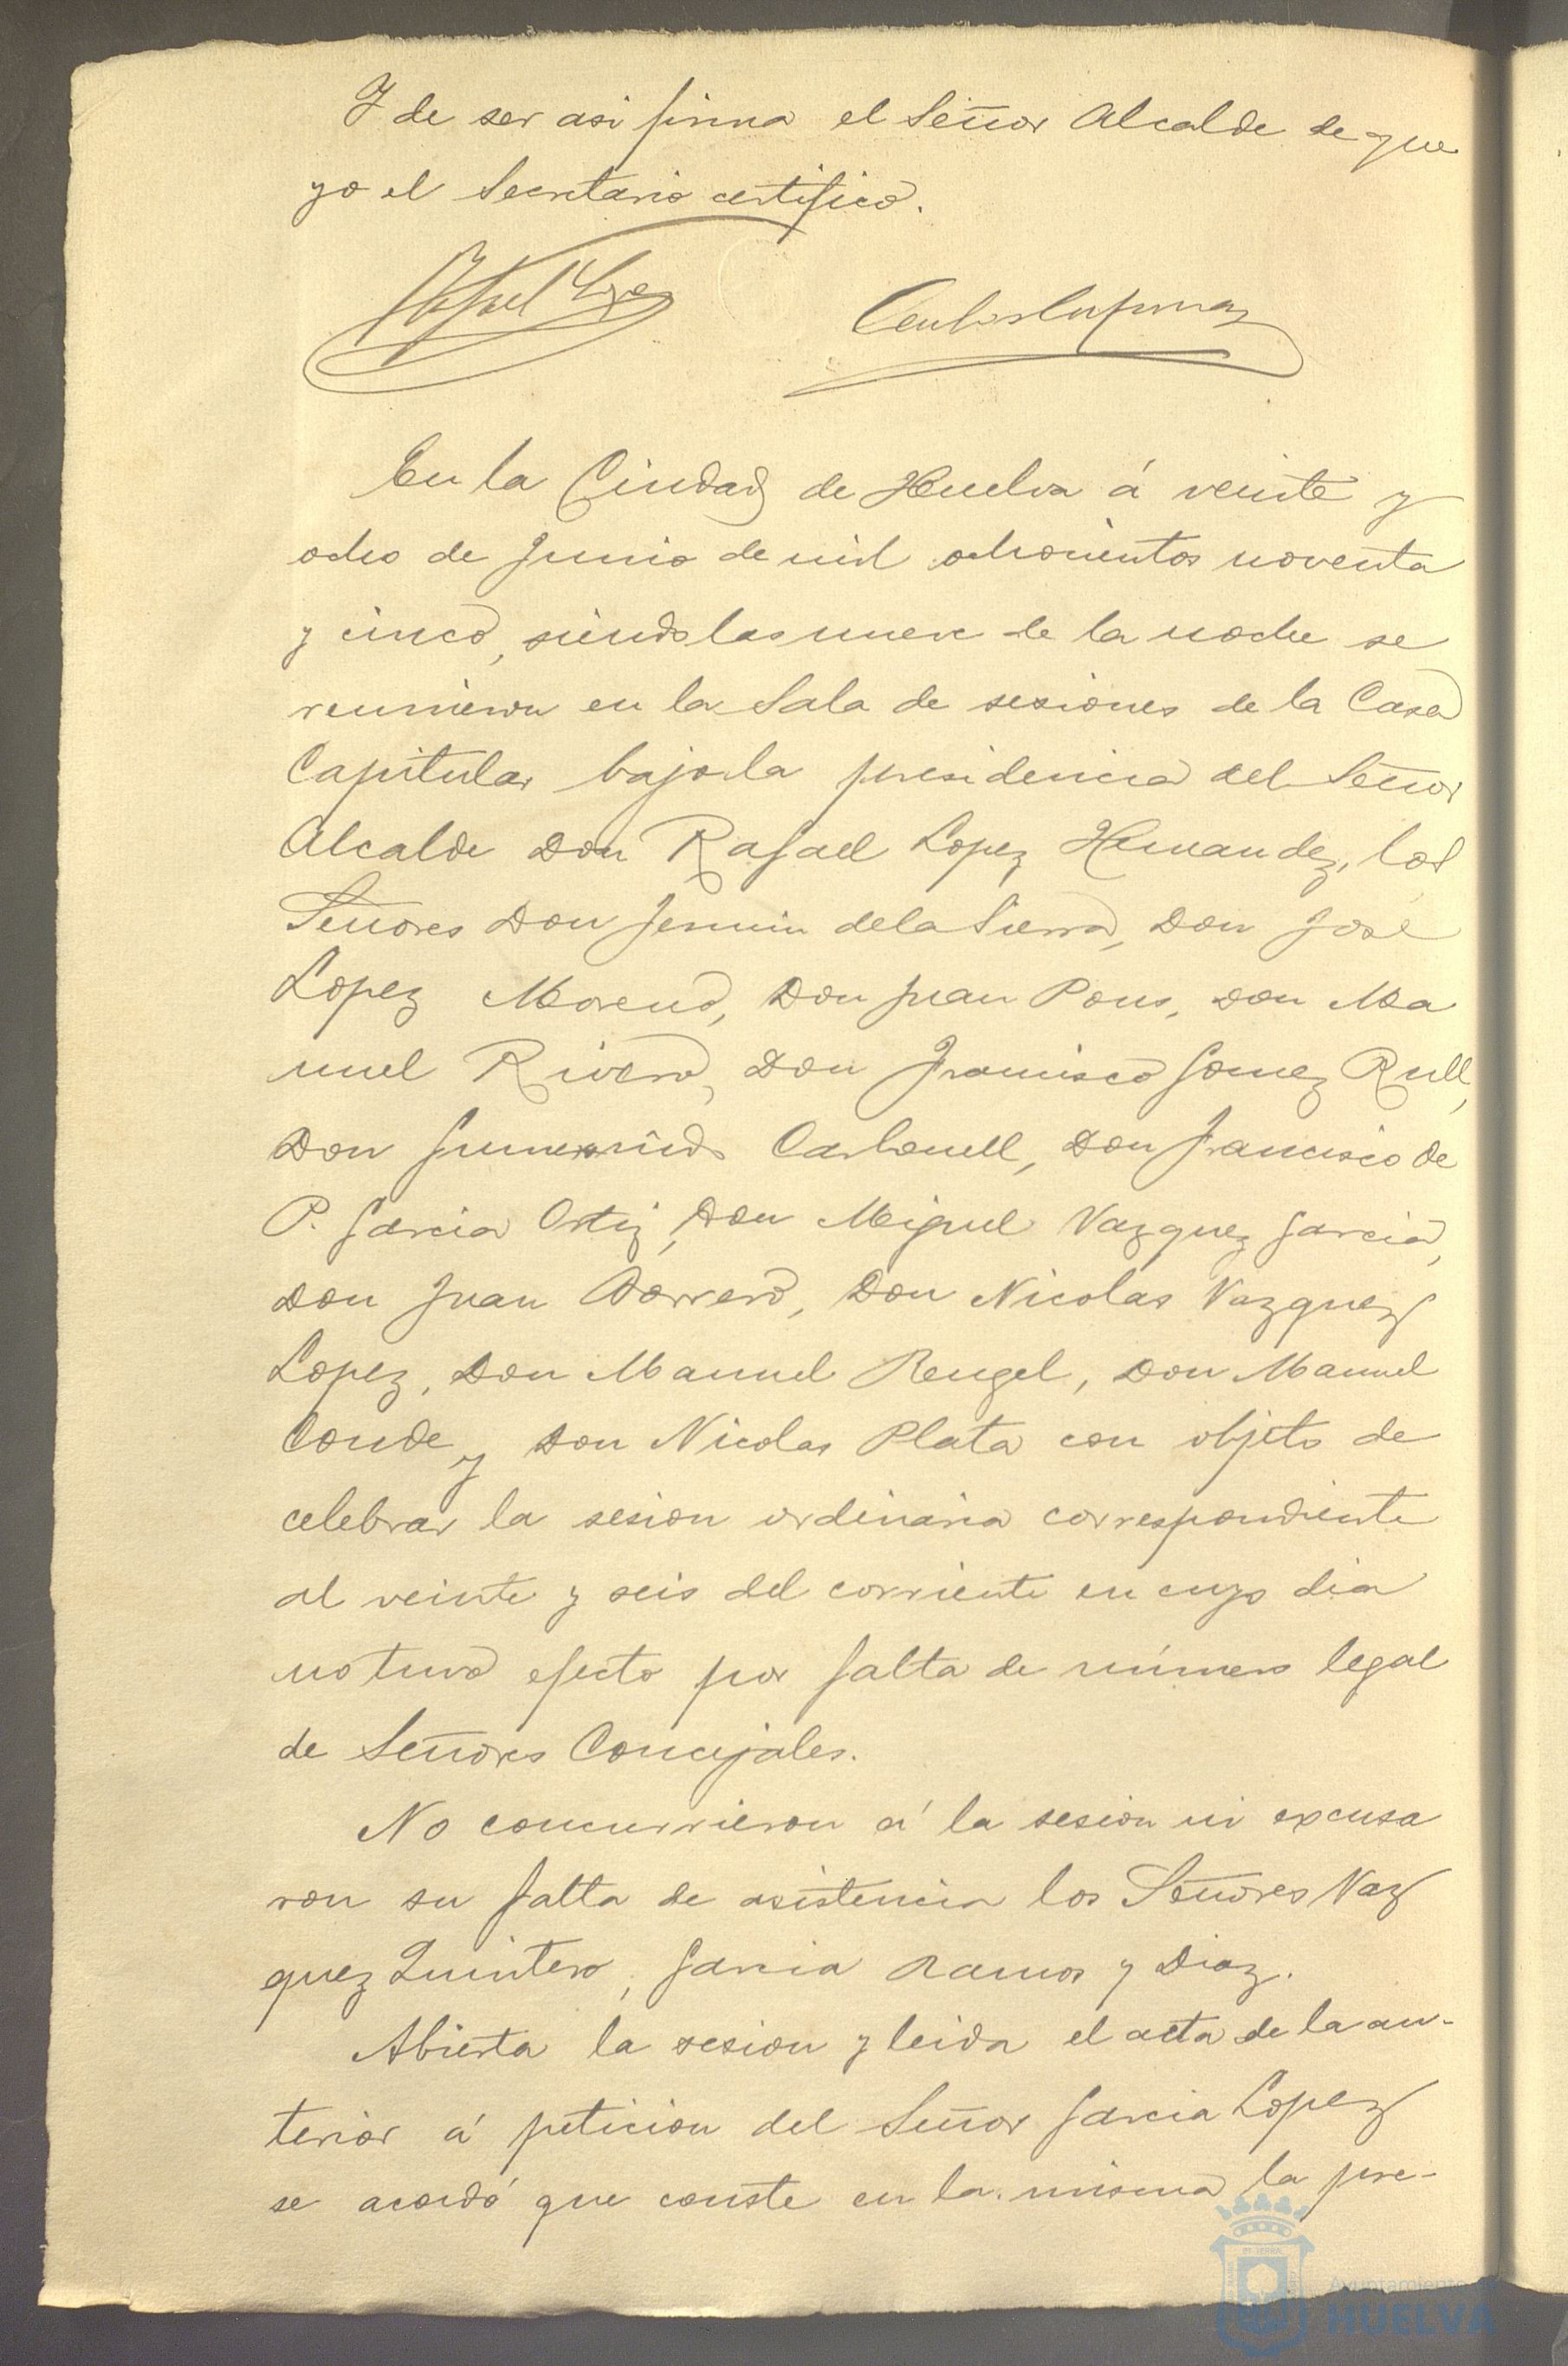 Y de ser asi firma el Señor Alcalde de que
yo el Secretario certifico.
Rafael Lopez
En la Ciudad de Huelva á veinte y
ocho de Junio de mil ochocientos noventa
y cinco, siendo las nueve de la noche se
reunieron en la Sala de sesiones de la Casa
Capitular bajo la presidencia del Señor
Alcalde Don Rafael Lopez Hernandez, los
Señores Don Fermin de la Sierra, Don José
Lopez Moreno, Don Juan Pons, Don Ma
nuel Rivero, Don Francisco Gomez Rull,
Don Gumersindo Carbonell, Don Francisco de
P. Garcia Ortiz, Don Miguel Vazquez Garcia,
Don Juan Borrero, Don Nicolas Vazquez
Lopez, Don Manuel Rengel, Don Manuel
Conde y Don Nicolas Plata con objeto de
celebrar la sesion ordinaria correspondiente
al veinte y seis del corriente en cuyo dia
no tuvo efecto por falta de número legal
de Señores Concejales.
No concurrieron á la sesion ni excusa
ron su falta de asistencia los Señores Vaz
quez Quintero, Garcia Ramos y Diaz.
Abierta la sesion y leida el acta de la an-
terior á peticion del Señor Garcia Lopez
se acordó que conste en la misma la pre-
Ayuntamiento
HUELVA